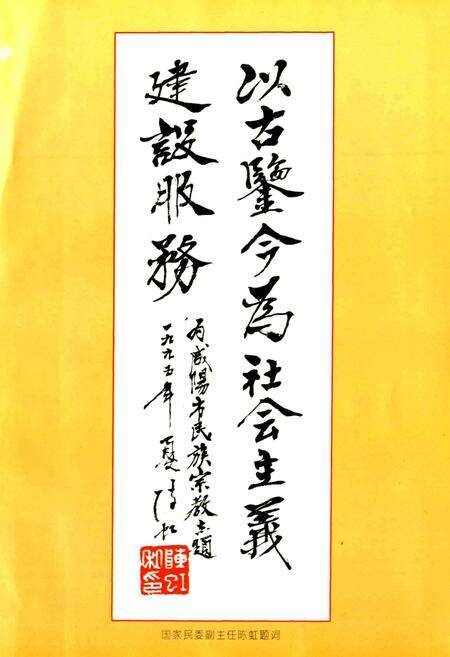 以古鑒今為社会主義
建設服務
为咸陽市民族宗教志題
一九九五年夏陈虹
陳虹
私印
国家民委副主任陈虹题词